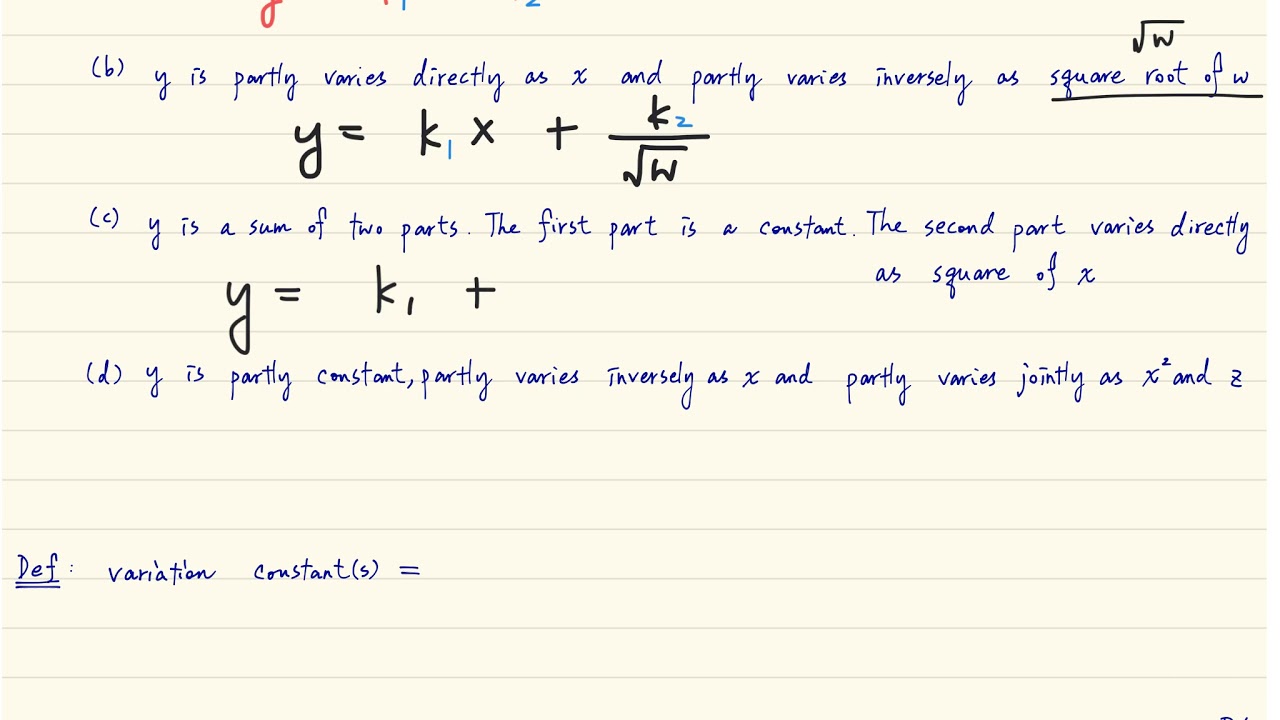 √w
(b) y is partly varies directly as x and partly varies inversely as square root of w
y = k₁ x + k₂/√w
(c) y is a sum of two parts. The first part is a constant. The second part varies directly
as square of x
y = k₁ +
(d) y is partly constant, partly varies inversely as x and partly varies jointly as x² and z
Def: variation constant(s) =